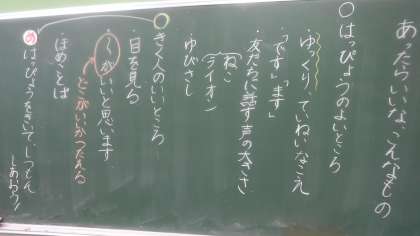 あったらいいな、こんなもの
○はっぴょうのよいところ
・ゆっくり、ていねいなこえ
・「です」「ます」
・友だちに話す声の大きさ
ねこ
ライオン
・ゆびさし
○きく人のいいところ
・目を見る
・〜がいいと思います。
どこがいいかつたえる
・ほめことば
めはっぴょうをきいて、しつもん
しあおう！